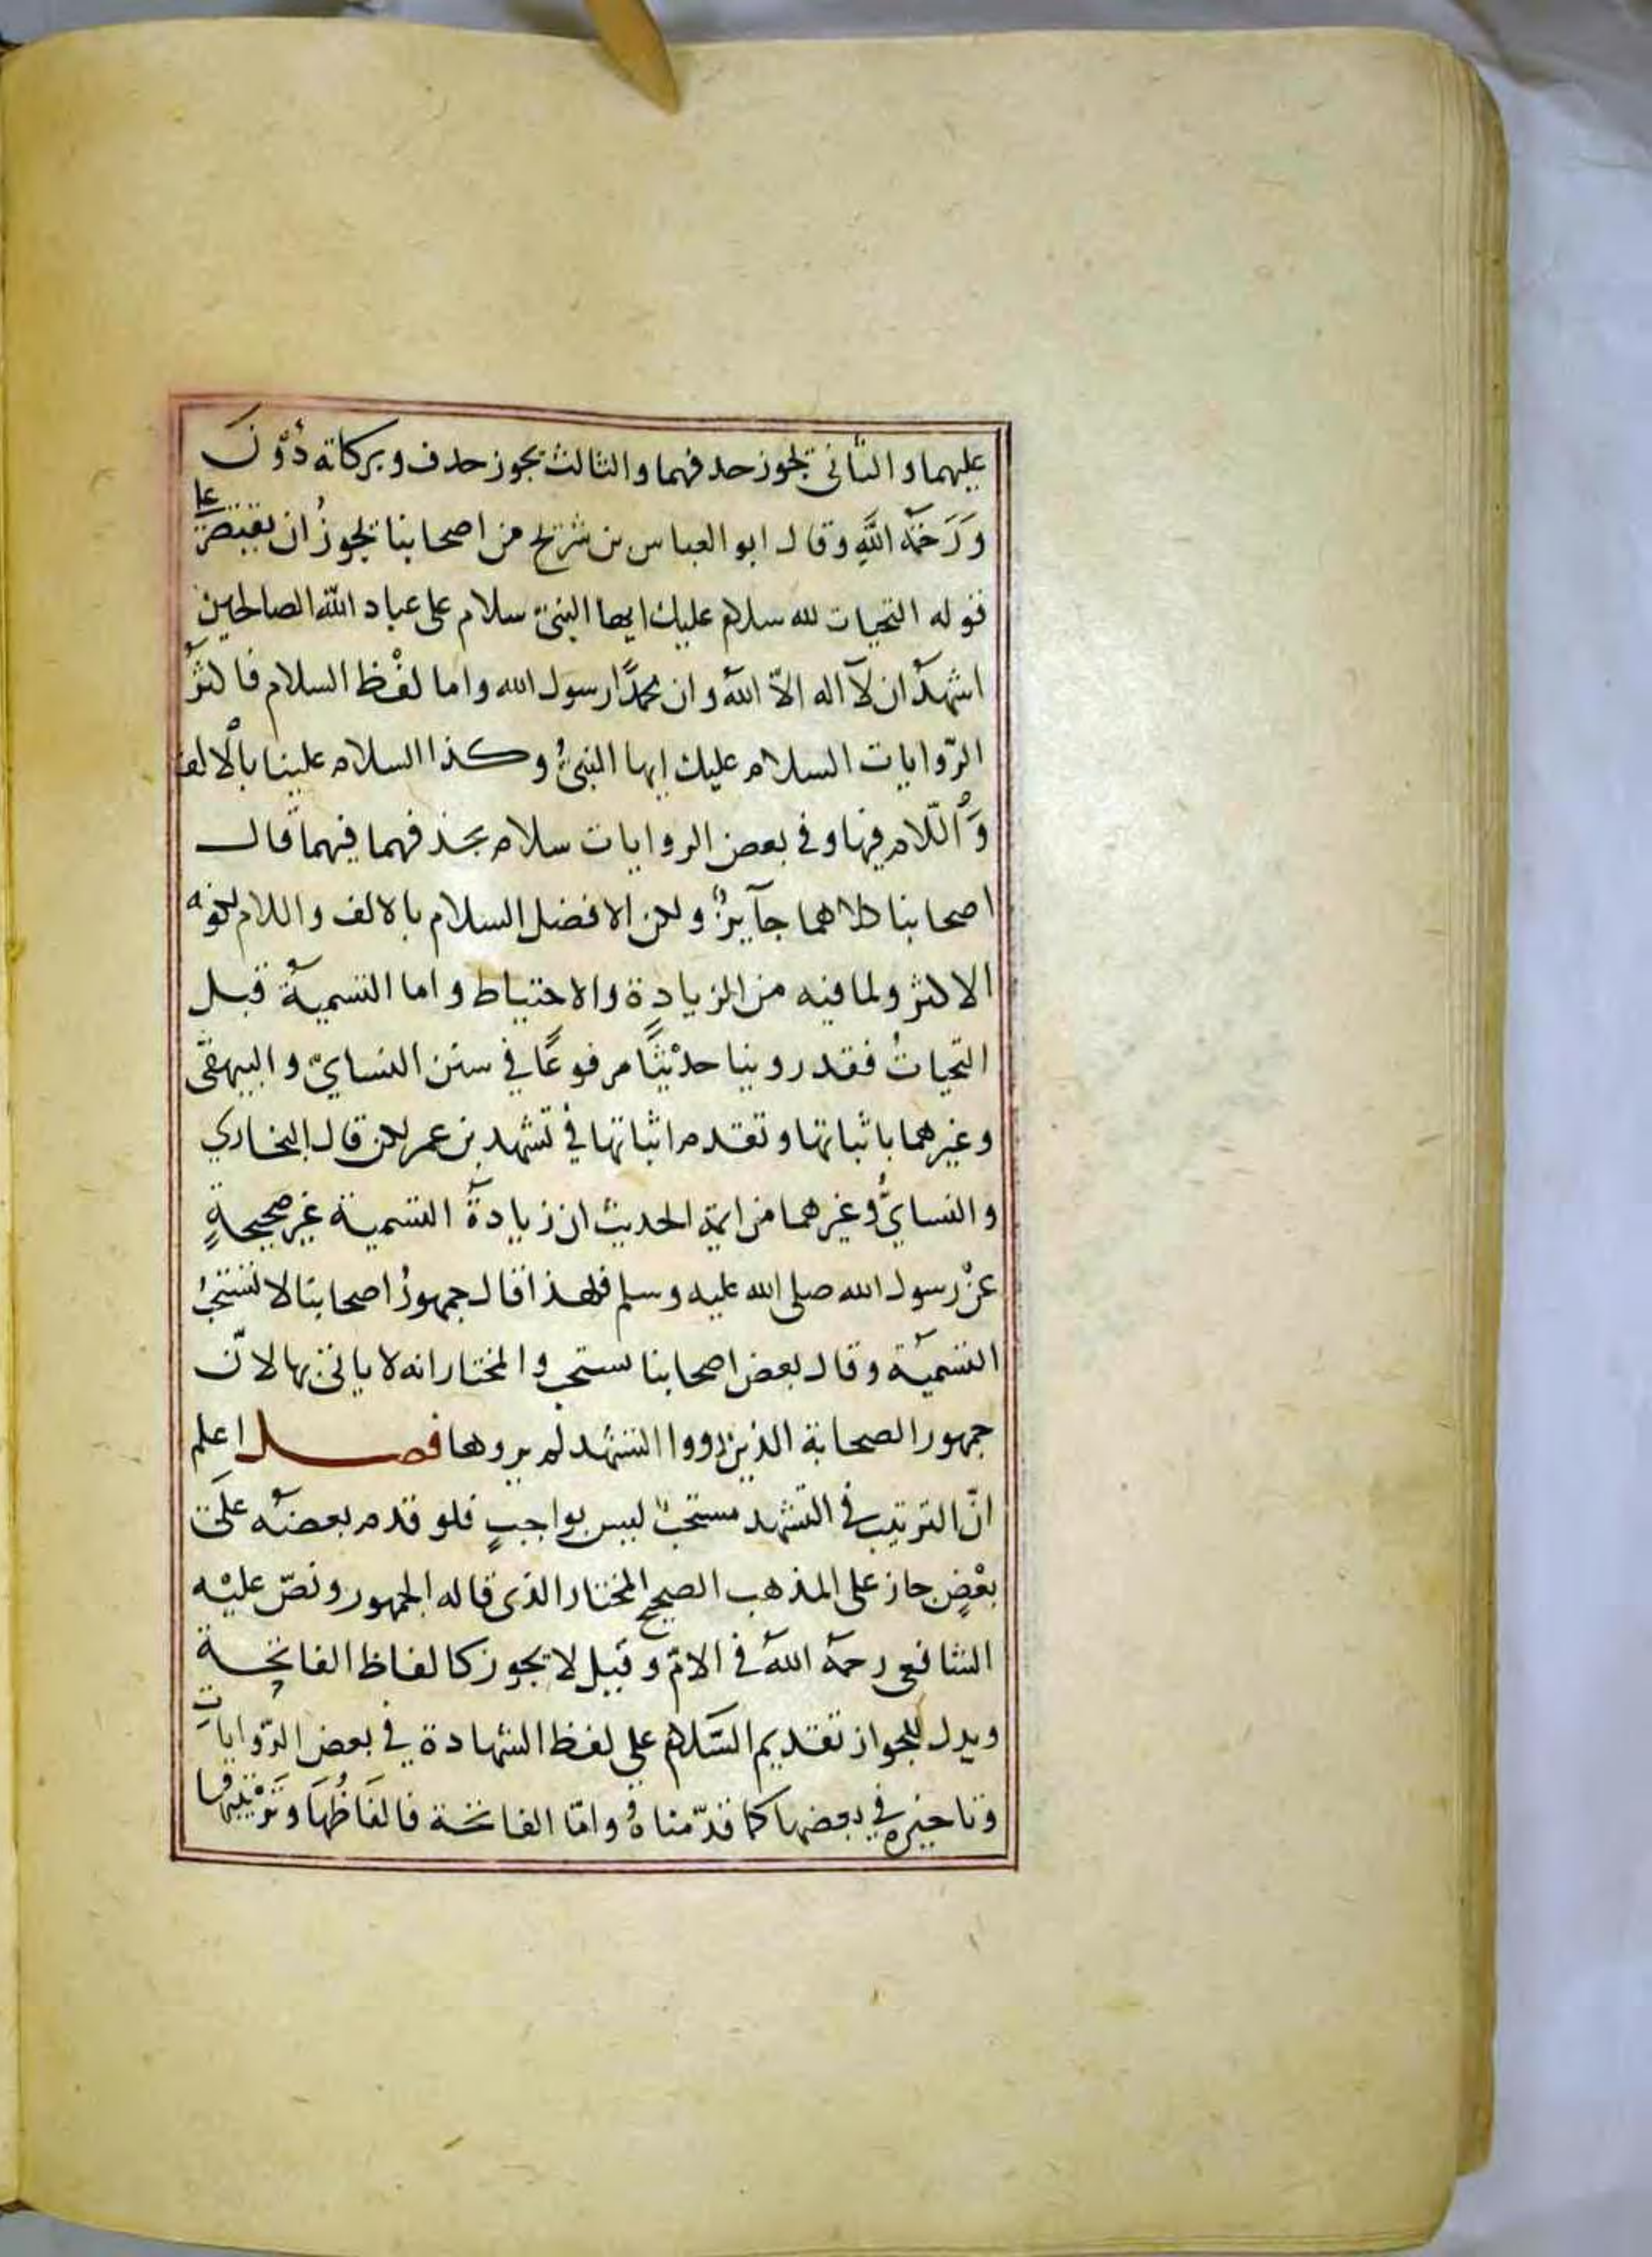 عليهما والثانى يجوز حدفهما والثالث يجوز حدف وبركاته دُوْنَ
وَرَحْمَة اللَّهِ وقال ابو العباس بن شريح من اصحابنا يجوزُ ان يقتصر على
قوله التحيات لله سلام عليك ايها النبىّ سلام على عباد الله الصالحين
اشهدُ ان لآ اله الاّ اللهُ وان محمدًا رسول الله واما لفْظ السلام فاكثرُ
الرّوايات السلام عليك ايها النبىُّ وكذا السلام علينا بالْالف
وَالّلام فيها وفي بعض الروايات سلام بحذفهما فيهما قال
اصحابنا كلاهما جآيزٌ ولكن الافضل السلام بالالف واللام لكونه
الاكثر ولما فيه من الزيادةِ والاحتياط واما التسميةُ قبل
التحياتُ فقد روينا حديْثًا مرفوعًا في سنن النسايّ والبيهقى
وغيرهما باثباتها وتقدم اثباتها في تشهد بن عمر لكن قال البخاري
والنسايُّ وغيرهما من ايمة الحديث ان زيادةَ التسمية غير صحيحةٍ
عنْ رسول الله صلى الله عليه وسلم فلهذا قال جمهورُ اصحابنا لا تستحبُ
التسميةُ وقال بعض اصحابنا تستحب والمختار انه لا ياتى بها لانّ
جمهور الصحابة الذين رووا التشهد لم يروها فصل اعلم
انّ الترتيب في التشهد مستحبٌ ليس بواجبٍ فلو قدم بعضهُ علَى
بعْضٍ جاز على المذهب الصحيح المختار الذى قاله الجمهور ونصّ عليْه
الشافعى رحمهُ اللهُ في الامّ وقيل لا يجوز كالفاظ الفاتحة
ويدل للجواز تقديم السّلام على لفظ الشهادة في بعض الرّوايات
وتاخيره في بعضها كما قدّمناهُ وامّا الفاتحة فالفَاظُهَا وترْتيبها